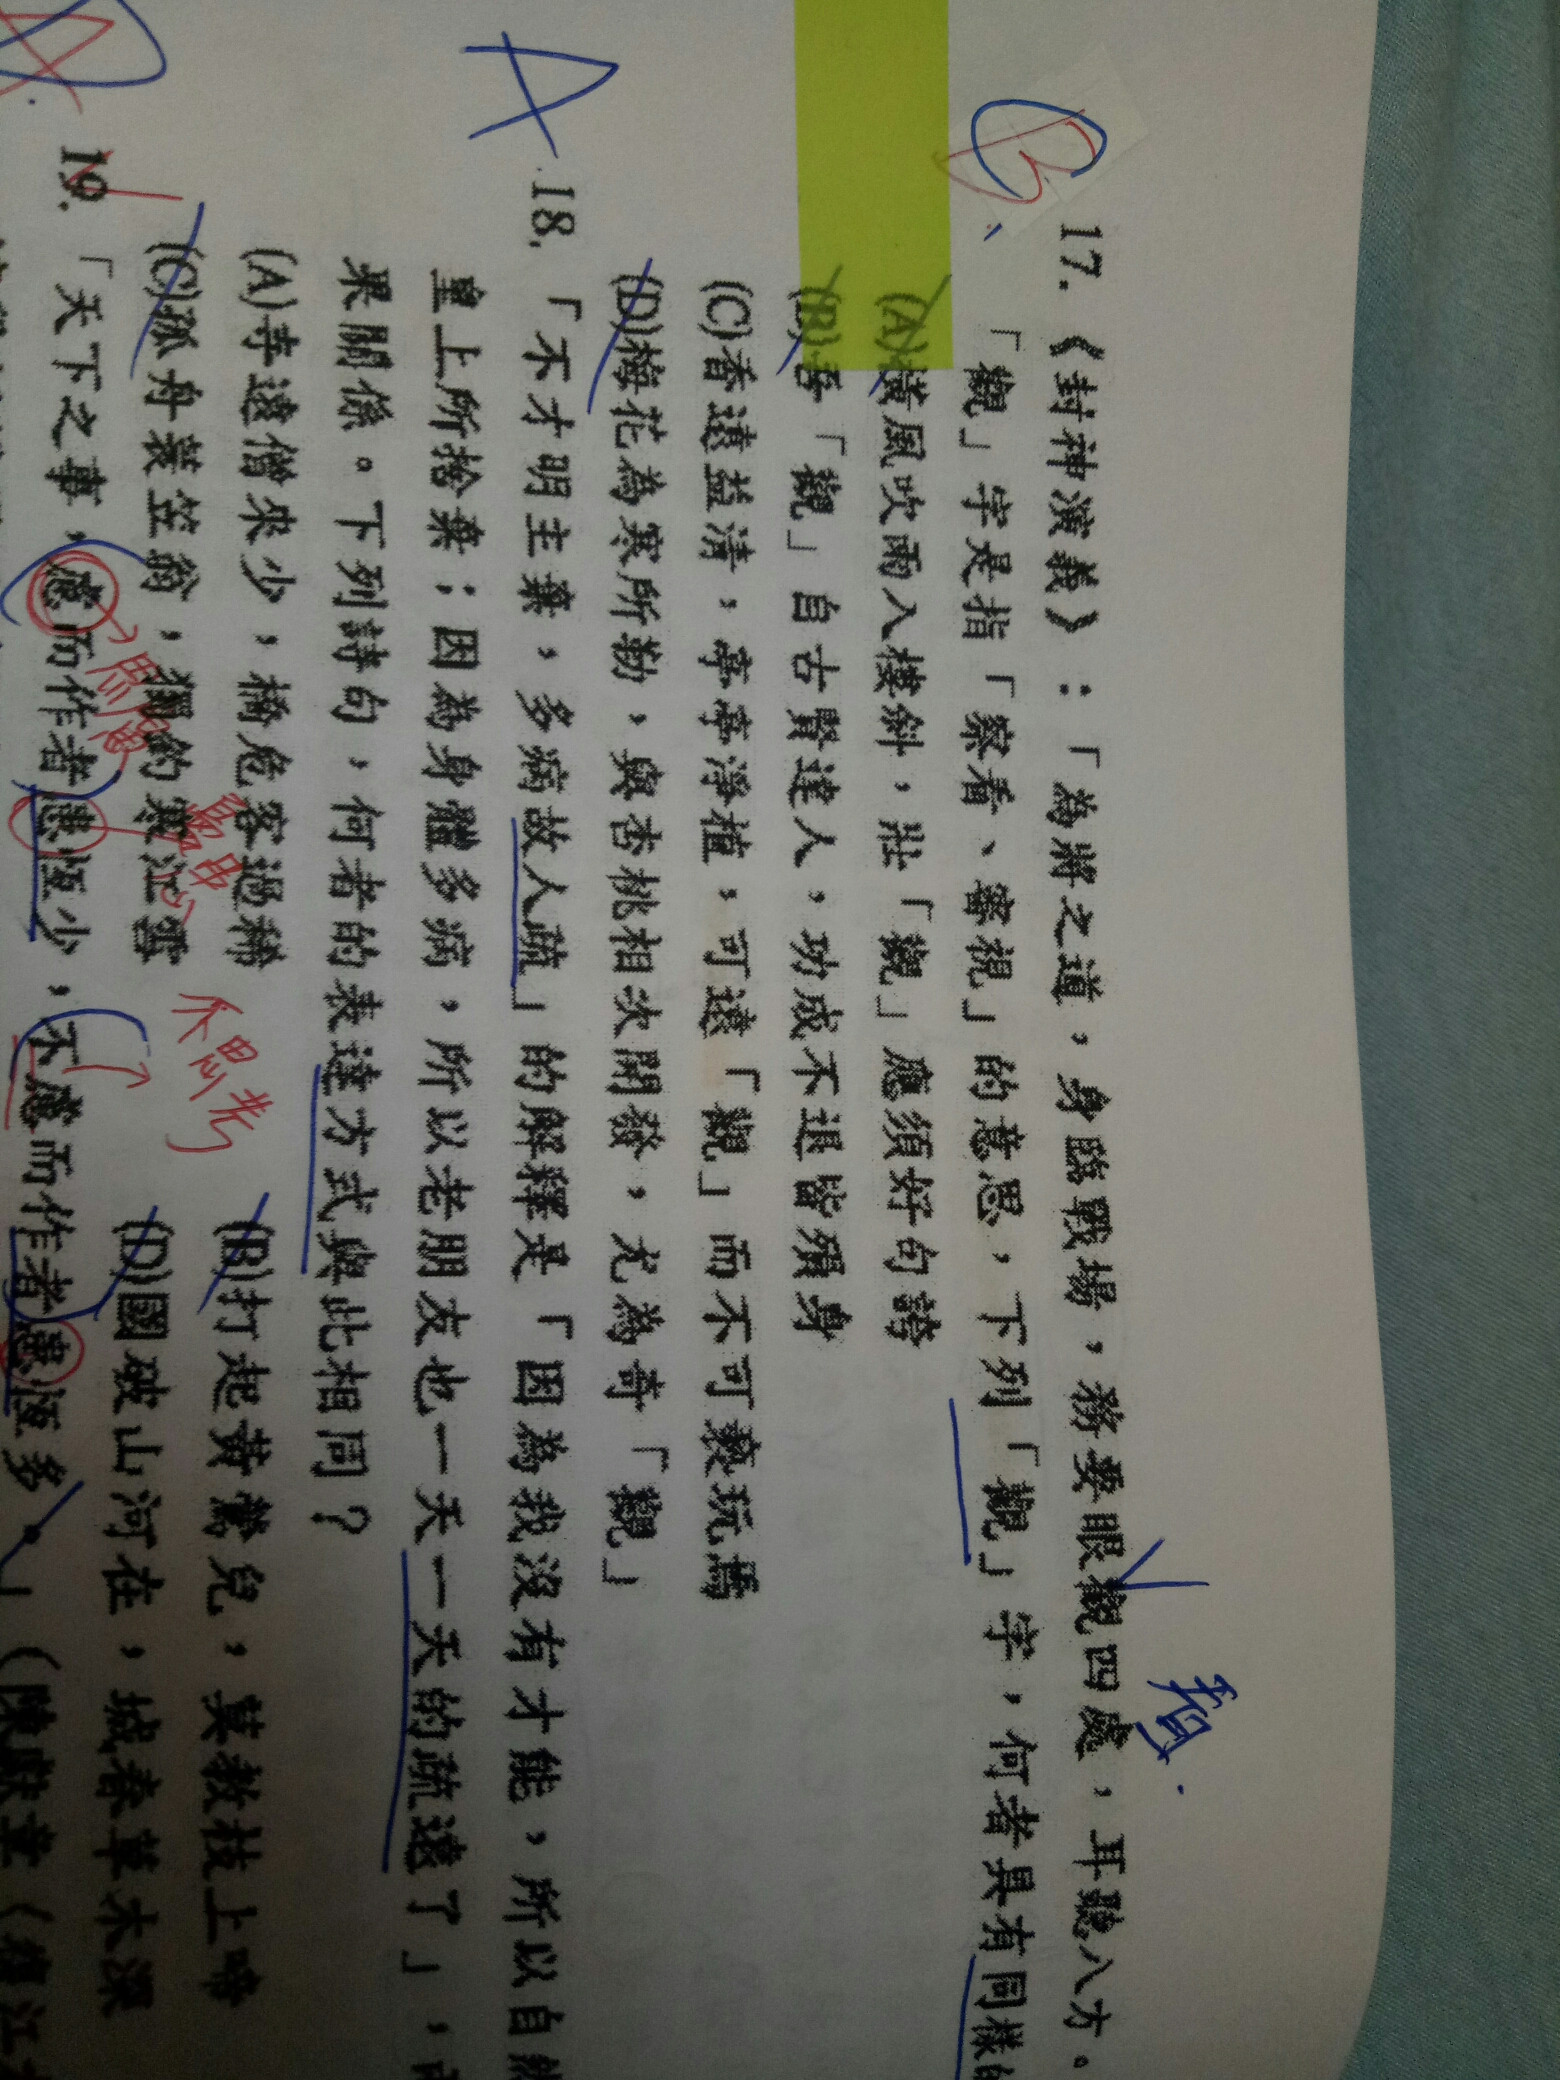 17.《封神演義》:「為將之道,身臨戰場,務要眼觀四處,耳聽八方。
「觀」字是指「察看、審視」的意思,下列「觀」字,何者具有同樣的
(A)橫風吹雨入樓斜,壯「觀」應須好句誇
(B)吾「觀」自古賢達人,功成不退皆殞身
(C)香遠益清,亭亭淨植,可遠「觀」而不可褻玩焉
(D)梅花為寒所勒,與杏桃相次開發,尤為奇「觀」
看
B
A
18.「不才明主棄,多病故人疏」的解釋是「因為我沒有才能,所以自然
皇上所捨棄;因為身體多病,所以老朋友也一天一天的疏遠了」,
果關係。下列詩句,何者的表達方式與此相同?
(A)寺遠僧來少,橋危客過稀
(B)打起黃鶯兒,莫教枝上啼
(C)孤舟蓑笠翁,獨釣寒江雪
(D)國破山河在,城春草木深
19.「天下之事,慮而作者患恆少,不慮而作者患恆多。」(陳獻章
思慮
不思考